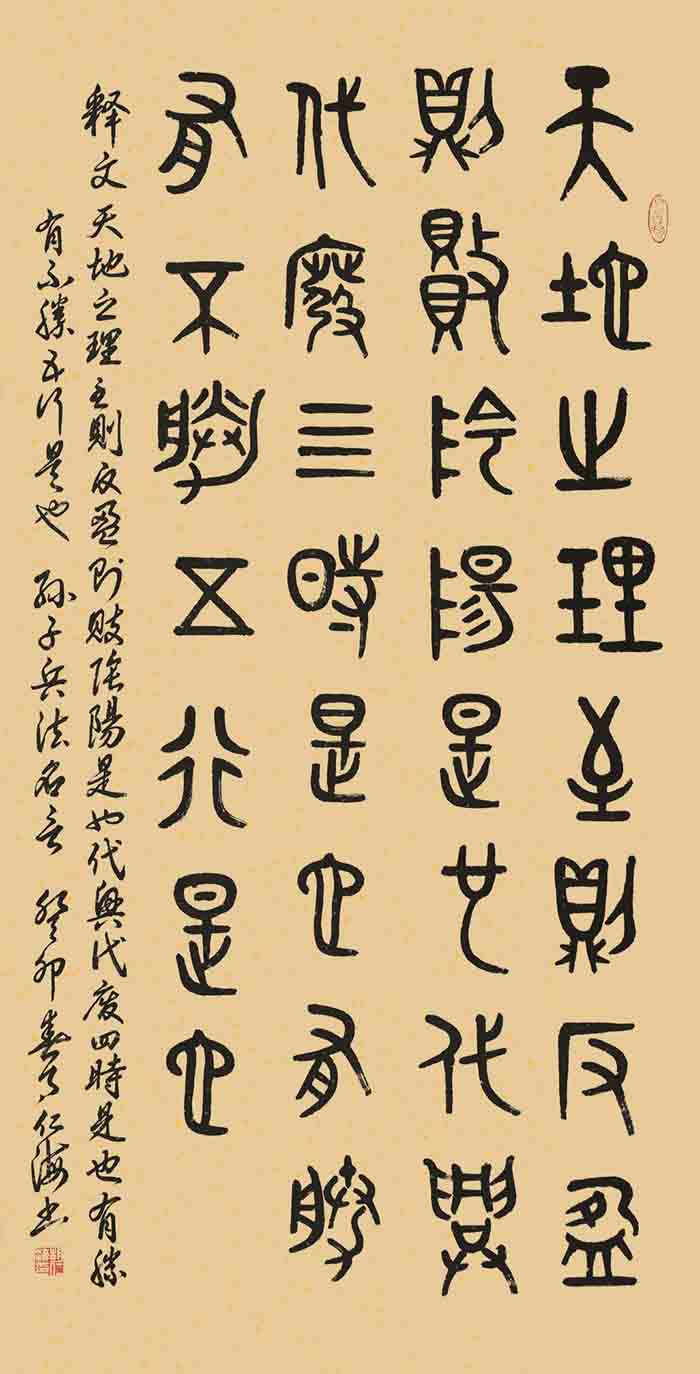 天地之理至則反盈
則敗陰陽是也代興
代廢三時是也有勝
有不勝五行是也
释文 天地之理至則反盈則敗陰陽是也代興代废四時是也有勝
有不勝五行是也 孫子兵法名言 癸卯春月仁海书